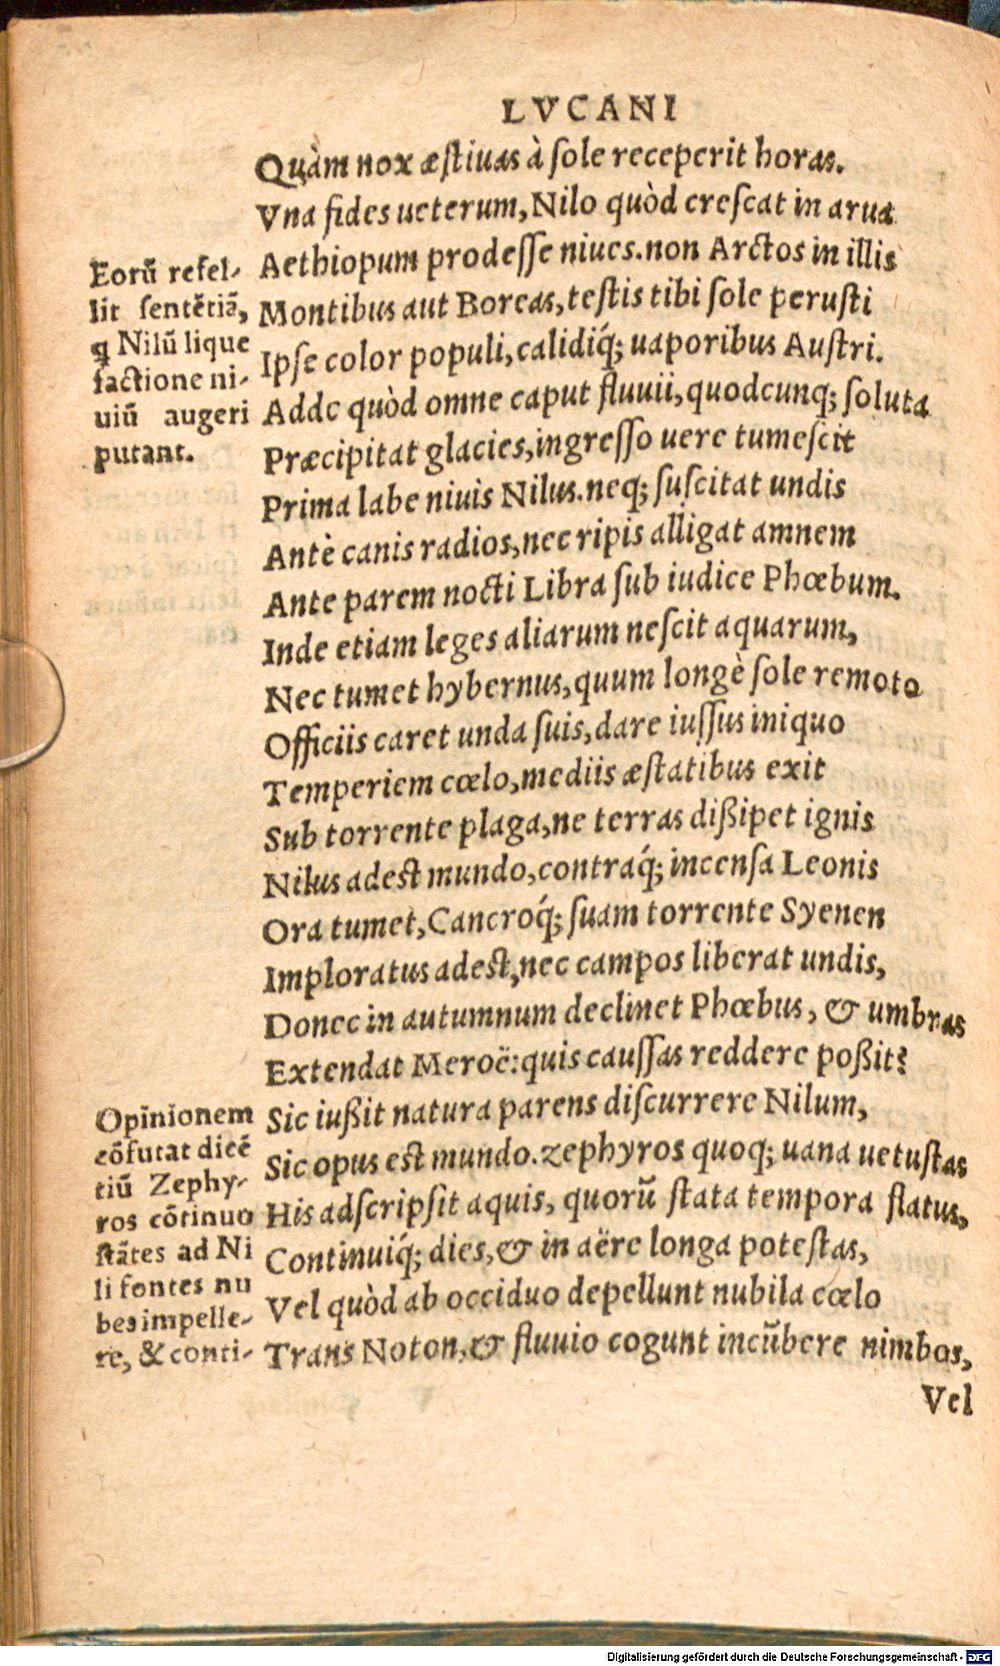 LVCANI
Quàm nox æstiuas à sole receperit horas.
Vna fides ueterum, Nilo quòd crescat in arua
Aethiopum prodesse niues. non Arctos in illis
Montibus aut Boreas, testis tibi sole perusti
Ipse color populi, calidiq́; uaporibus Austri.
Adde quòd omne caput fluuii, quodcunq; soluta
Præcipitat glacies, ingresso uere tumescit
Prima labe niuis Nilus. neq; suscitat undis
Antè canis radios, nec ripis alligat amnem
Ante parem nocti Libra sub iudice Phœbum.
Inde etiam leges aliarum nescit aquarum,
Nec tumet hybernus, quum longè sole remoto
Officiis caret unda suis, dare iussus iniquo
Temperiem cœlo, mediis æstatibus exit
Sub torrente plaga, ne terras dißipet ignis
Nilus adest mundo, contraq́; incensa Leonis
Ora tumet, Cancroq́; suam torrente Syenen
Imploratus adest, nec campos liberat undis,
Donec in autumnum declinet Phœbus, & umbras
Extendat Meroë: quis caussas reddere poßit?
Sic iußit natura parens discurrere Nilum,
Sic opus est mundo. zephyros quoq; uana uetustas
His adscripsit aquis, quorũ stata tempora flatus,
Continuiq́; dies, & in aëre longa potestas,
Vel quòd ab occiduo depellunt nubila cœlo
Trans Noton, & fluuio cogunt incũbere nimbos,
Vel
Eorũ refel-
lit sentẽtiã,
q Nilũ lique
factione ni-
uiũ augeri
putant.
Opinionem
cõfutat dicẽ
tiũ Zephy-
ros cõtinuo
flãtes ad Ni
li fontes nu
bes impelle-
re, & conti-
Digitalisierung gefördert durch die Deutsche Forschungsgemeinschaft - DFG